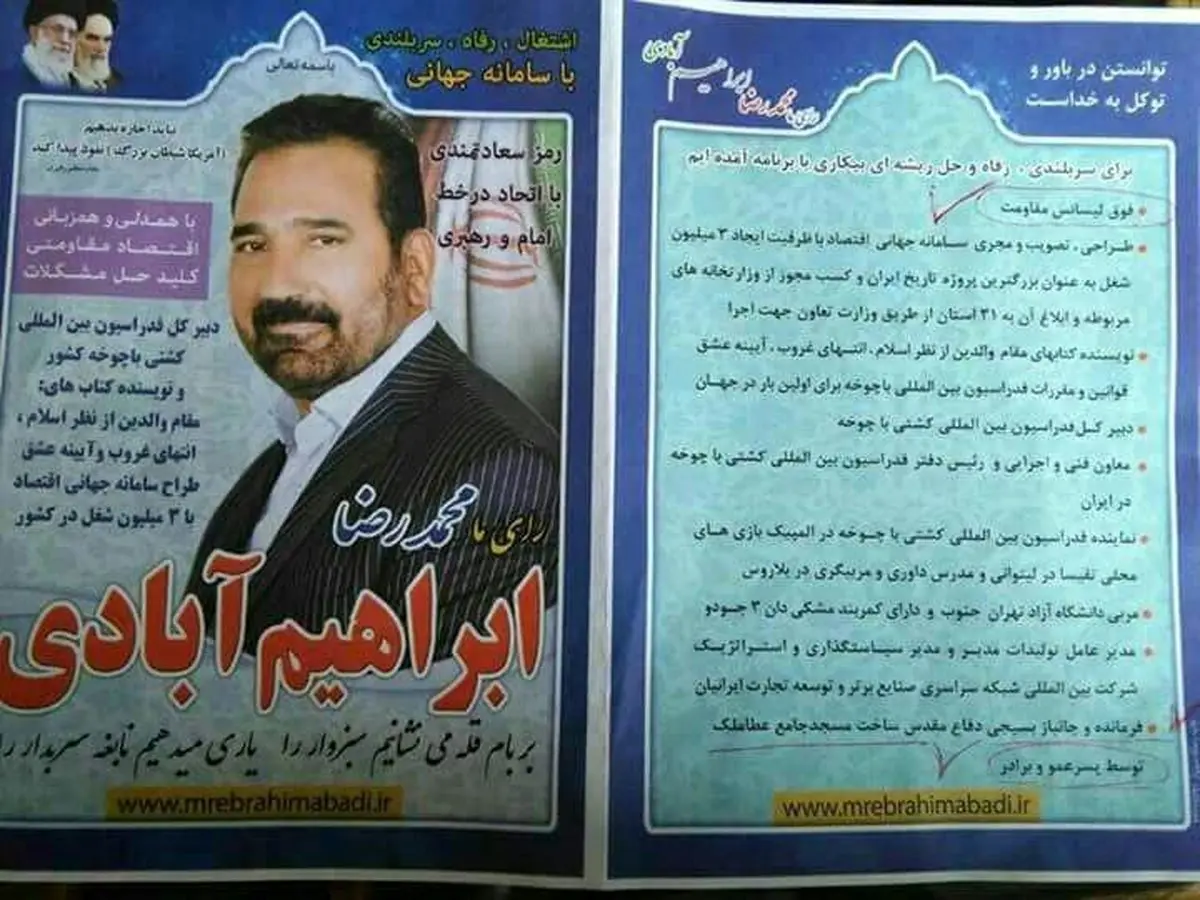 اشتغال ، رفاه ، سربلندی
با سامانه جهانی
باسمه تعالی
نباید اجازه بدهیم
(آمریکا شیطان بزرگ) نفوذ پیدا کند
مقام معظم رهبری
رمز سعادتمندی
با اتحاد در خط
امام و رهبری
با همدلی و همزبانی
اقتصاد مقاومتی
کلید حل مشکلات
دبیر کل فدراسیون بین المللی
کشتی باچوخه کشور
و نویسنده کتاب های:
مقام والدین از نظر اسلام ،
انتهای غروب و آیینه عشق
طراح سامانه جهانی اقتصاد
با ۳ میلیون شغل در کشور
رای ما محمد رضا
ابراهیم آبادی
بر بام قله می نشانیم سبزوار را یاری میدهیم نابغه سربدار را
www.mrebrahimabadi.ir
توانستن در باور و
توکل به خداست
رای ما محمد رضا ابراهیم آبادی
برای سربلندی ، رفاه و حل ریشه ای بیکاری با برنامه آمده ایم
فوق لیسانس مقاومت
طراحی ، تصویب و مجری سامانه جهانی اقتصاد با ظرفیت ایجاد ۳ میلیون
شغل به عنوان بزرگترین پروژه تاریخ ایران و کسب مجوز از وزارتخانه های
مربوطه و ابلاغ آن به ۳۱ استان از طریق وزارت تعاون جهت اجرا
نویسنده کتابهای مقام والدین از نظر اسلام ، انتهای غروب ، آیینه عشق
قوانین و مقررات فدراسیون بین المللی باچوخه برای اولین بار در جهان
دبیر کل فدراسیون بین المللی کشتی با چوخه
معاون فنی و اجرایی و رئیس دفتر فدراسیون بین المللی کشتی با چوخه
در ایران
نماینده فدراسیون بین المللی کشتی با چوخه در المپیک بازی های
محلی تفیسا در لیتوانی و مدرس داوری و مربیگری در بلاروس
مربی دانشگاه آزاد تهران جنوب و دارای کمربند مشکی دان ۳ جودو
مدیر عامل تولیدات مدیر و مدیر سیاستگذاری و استراتژیک
شرکت بین المللی شبکه سراسری صنایع برتر و توسعه تجارت ایرانیان
فرمانده و جانباز بسیجی دفاع مقدس ساخت مسجد جامع عطاملک
توسط پسرعمو و برادر
www.mrebrahimabadi.ir